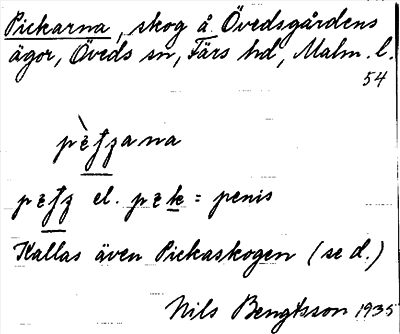 Pickarna, skog å Övedsgårdens
ägor, Öveds sn, Färs hd, Malm. l.
54
el. = penis
Kallas även Pickaskogen (se d.)
Nils Bengtsson 1935